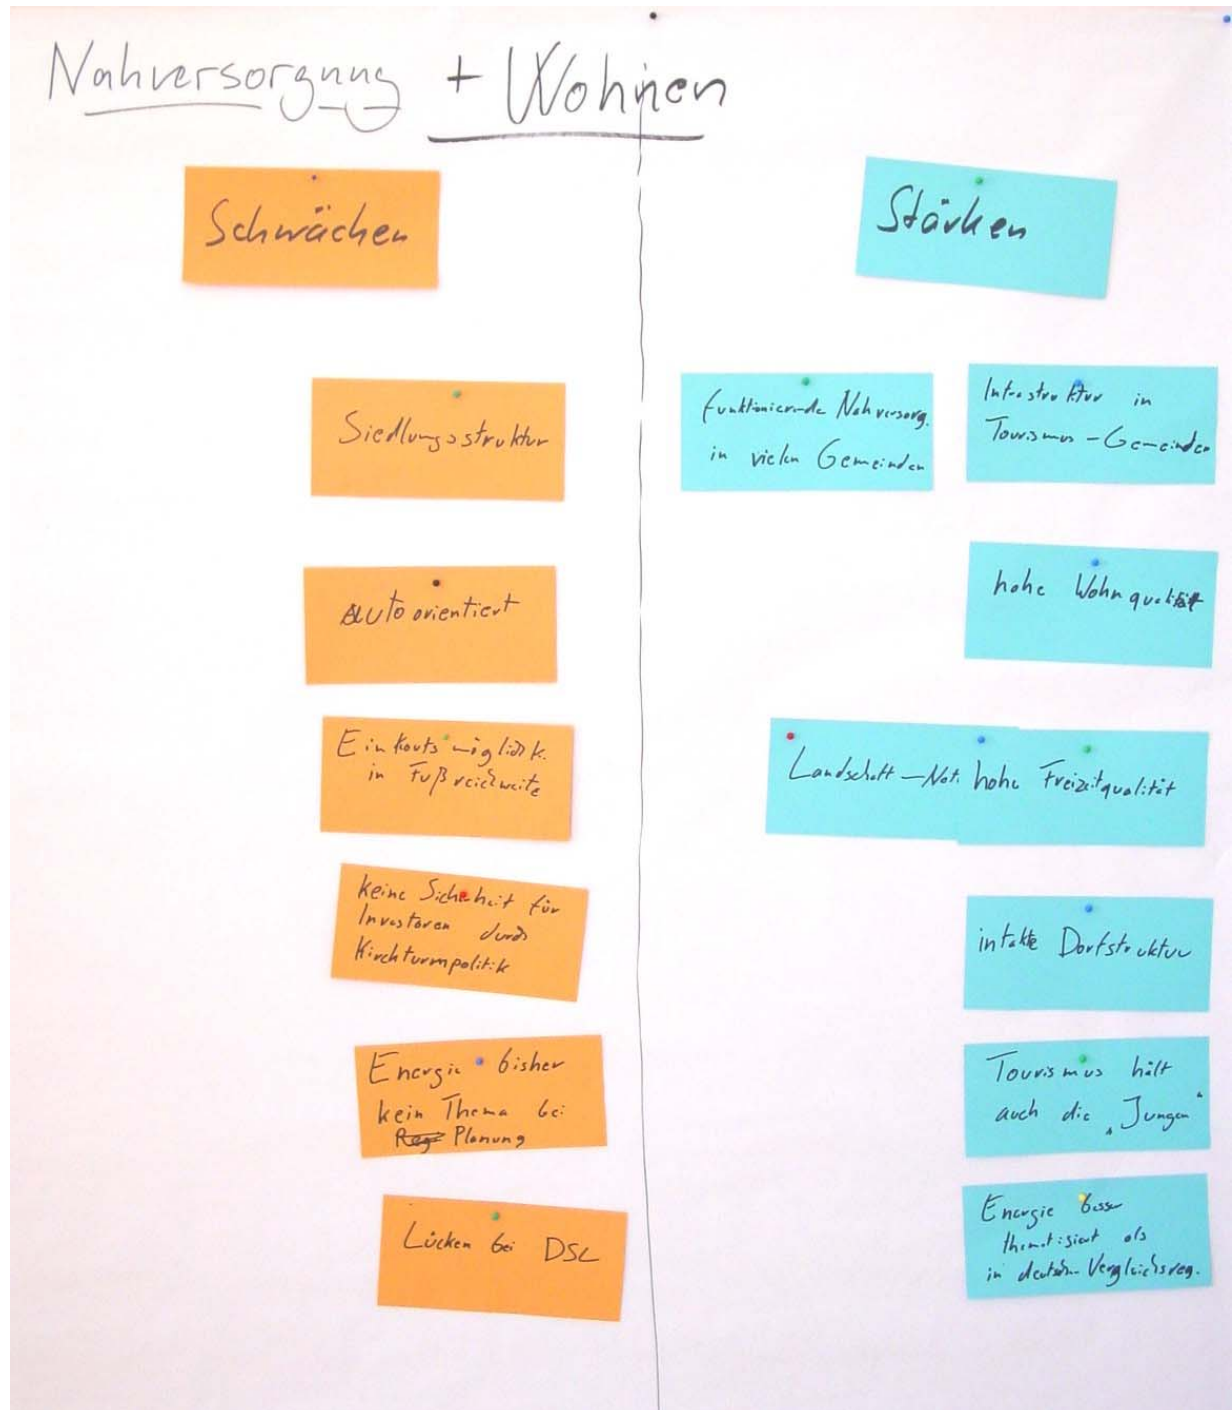 Nahversorgung + Wohnen
Schwächen
Siedlungsstruktur
autoorientiert
Einkaufsmöglichk.
in Fußreichweite
keine Sicherheit für
Investoren durch
Kirchturmpolitik
Energie bisher
kein Thema bei
Planung
Lücken bei DSL
Stärken
funktionierende Nahversorg.
in vielen Gemeinden
Infrastruktur in
Tourismus-Gemeinden
hohe Wohnqualität
Landschaft - Nat.
hohe Freizeitqualität
intakte Dorfstruktur
Tourismus hält
auch die „Jungen“
Energie besser
thematisiert als
in deutschen Vergleichsreg.